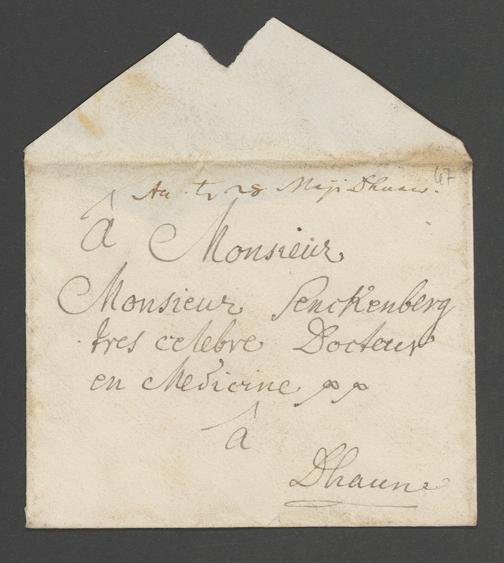 47
28 Maji Dhaun.
à Monsieur
Monsieur Senckenberg
tres celebre Docteur
en Medicine pp
à
Dhaun